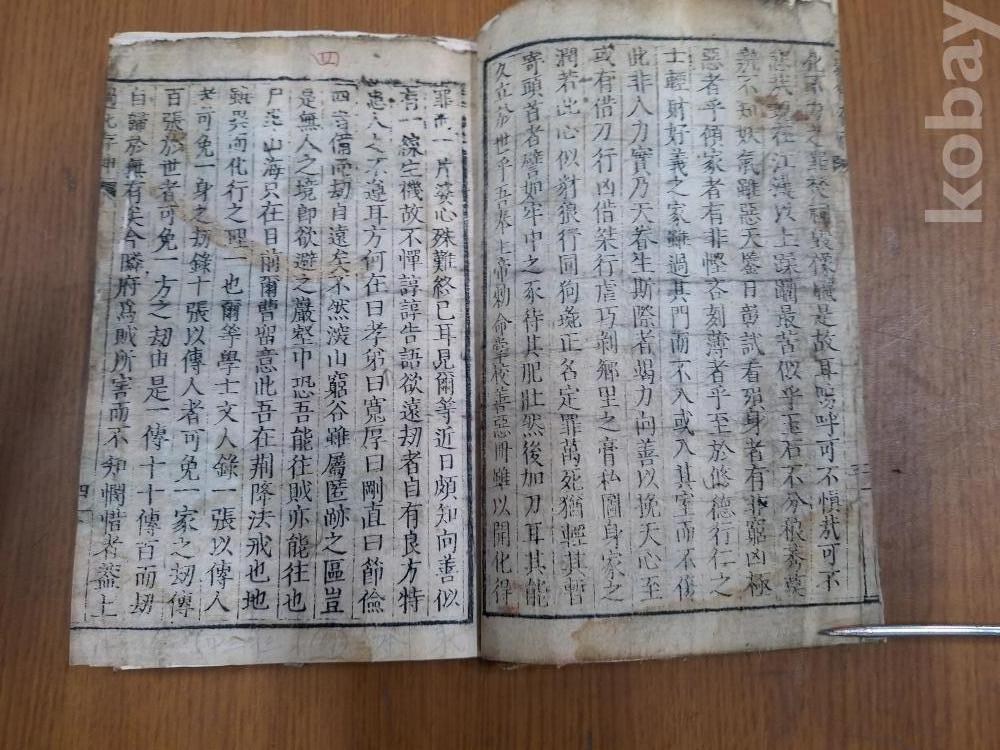 化不力之罪
是故耳嗚呼可不愼哉可不
在江漢以上蹂躪最苦似乎玉石不分狼莠莫
孰不知妖氣雖惡天鑒日彰試看殞身者有非窮凶極
惡者乎傾家者有非慳吝刻薄者乎至於修德行仁之
士輕財好義之家雖過其門而不入或入其室而不傷
此非人力實乃天眷生斯際者竭力向善以挽天心至
或有借刀行凶借桀行虐巧剝鄕里之膏私圖身家之
潤若此心似豺狼行同狗彘正名定罪萬死猶輕其暫
寄頭首者譬如牢中之豕待其肥壯然後加刀耳其能
久立於世乎吾奉上帝勅命掌校善惡冊雖以開化得
罪而一片婆心殊難終已耳見爾等近日頗知向善似
有一線生機故不憚諄諄告語欲遠劫者自有良方特
患人之不遵耳方何在曰孝弟曰寬厚曰剛直曰節儉
四言備而劫自遠矣不然深山窮谷雖屬匿跡之區豈
是無人之境卽欲避之巖壑中恐吾能往賊亦能往也
尸 山 海只在目前爾曹留意此吾在荆降法戒也地
雖異而化行之理一也爾等學士文人錄一張以傳人
者可免一身之劫錄十張以傳人者可免一家之劫傳
百張於世者可免一方之劫由是一傳十十傳百而劫
自歸於無有矣今隣府爲賊所害而不知憫惜者蓋上
四
四
kobay